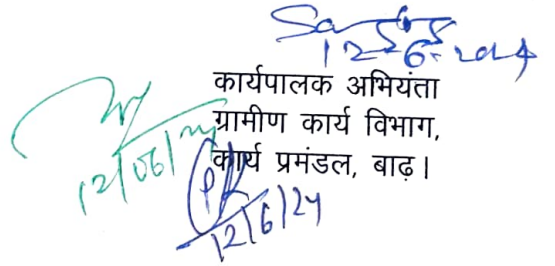 12.6.2024
कार्यपालक अभियंता
ग्रामीण कार्य विभाग,
कार्य प्रमंडल, बाढ़।
12/06/24
12/6/24